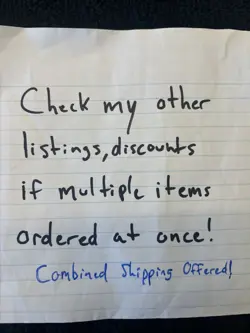 Check my other
listings, discounts
if multiple items
ordered at once!
Combined Shipping Offered!